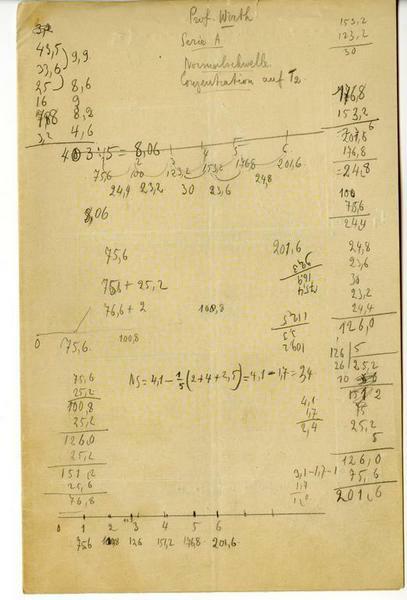 Prof. Wirth
Serie A
Normalschwelle
Conzentration auf T2
43,5
33,6
25
16
3,2
9,9
8,6
9
8,2
4,6
40 3 : 5 = 8,06
8,06
1 2 3 4 5 6
75,6 100 123,2 153,2 176,8 201,6
24,4 23,2 30 23,6 24,8
153,2
123,2
30
176,8
153,2
201,6
176,8
= 24,8
100
75,6
24,4
24,8
23,6
30
23,2
24,4
126,0
75,6
75,6 + 25,2
76,6 + 2
100,8
201,6
0
75,6
100,8
126 | 5
26 25,2
10
25,2
5
126,0
75,6
201,6
NS = 4,1 - 1/5 (2+4+2,5) = 4,1 - 1,7 = 3,4
4,1
1,7
2,4
75,6
25,2
100,8
25,2
126,0
25,2
151,2
25,6
76,8
0 1 2 3 4 5 6
75,6 100,8 126 151,2 176,8 201,6